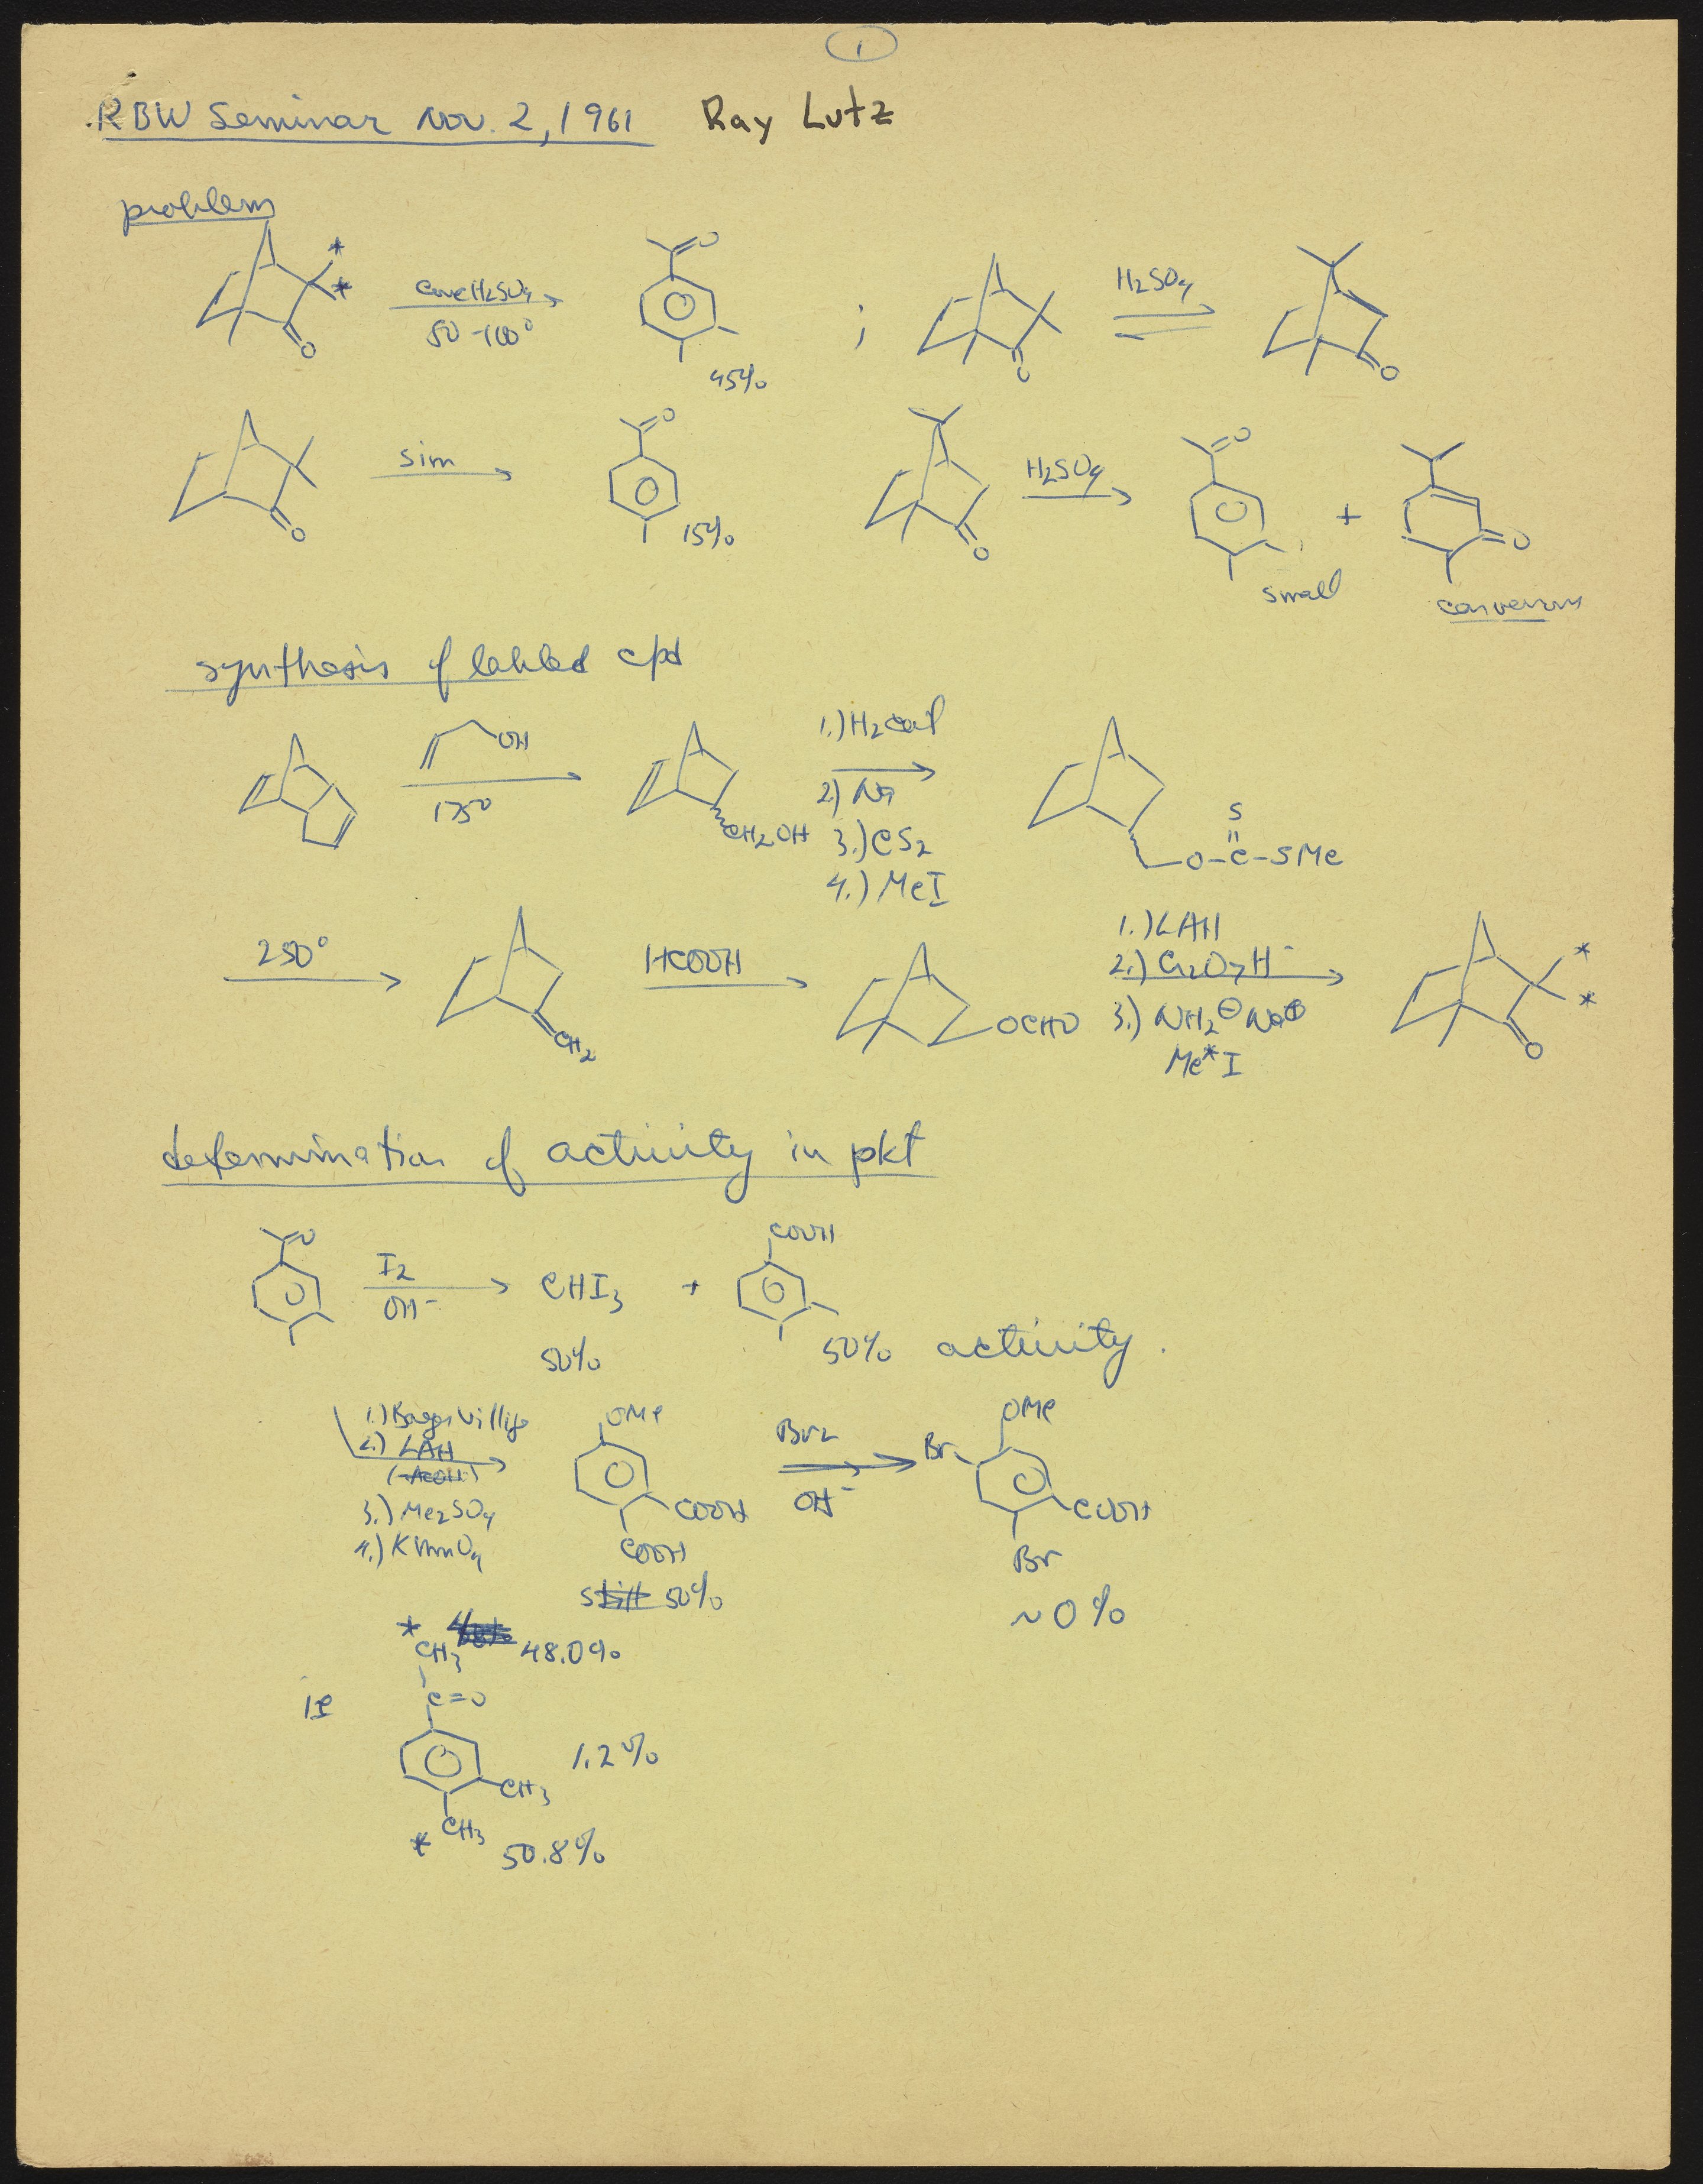 1
RBW Seminar Nov. 2, 1961 Ray Lutz
problem
* * conc H2SO4 50-100° O 45% ; O H2SO4 O
O sim O 15% O H2SO4 O small + O
synthesis of labled cpd
OH 175° CH2OH 1.) H2 cat 2.) Na 3.) CS2 4.) MeI O-C-SMe S
250° CH2 HCOOH OCHO 1.) LAH 2.) Cr2O7H- 3.) NH2⊖ Na⊕ Me*I * * O
determination of activity in pkt
O I2 OH- CHI3 50% + COOH 50% activity.
1.) Bayer Villige
2.) LAH
(-AcOH)
3.) Me2SO4
4.) KMnO4
OMe COOH COOH still 50%
Br2 OH-
OMe Br COOH Br ~0%
* CH3 48.0%
ie C=O
1.2% CH3
* CH3 50.8%